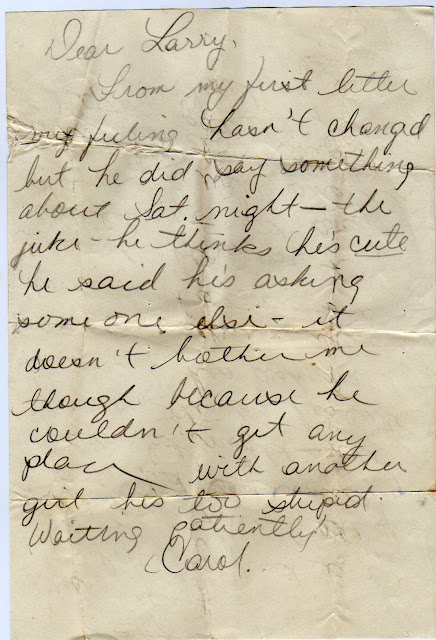 Dear Larry,
From my first letter
my feeling hasn't changd
but he did say something
about Sat. night - the
juke - he thinks his cute
he said his asking
someone else - it
doesn't bother me
though because he
couldn't get any
place with another
girl his too stupid.
Waiting patiently
Carol.